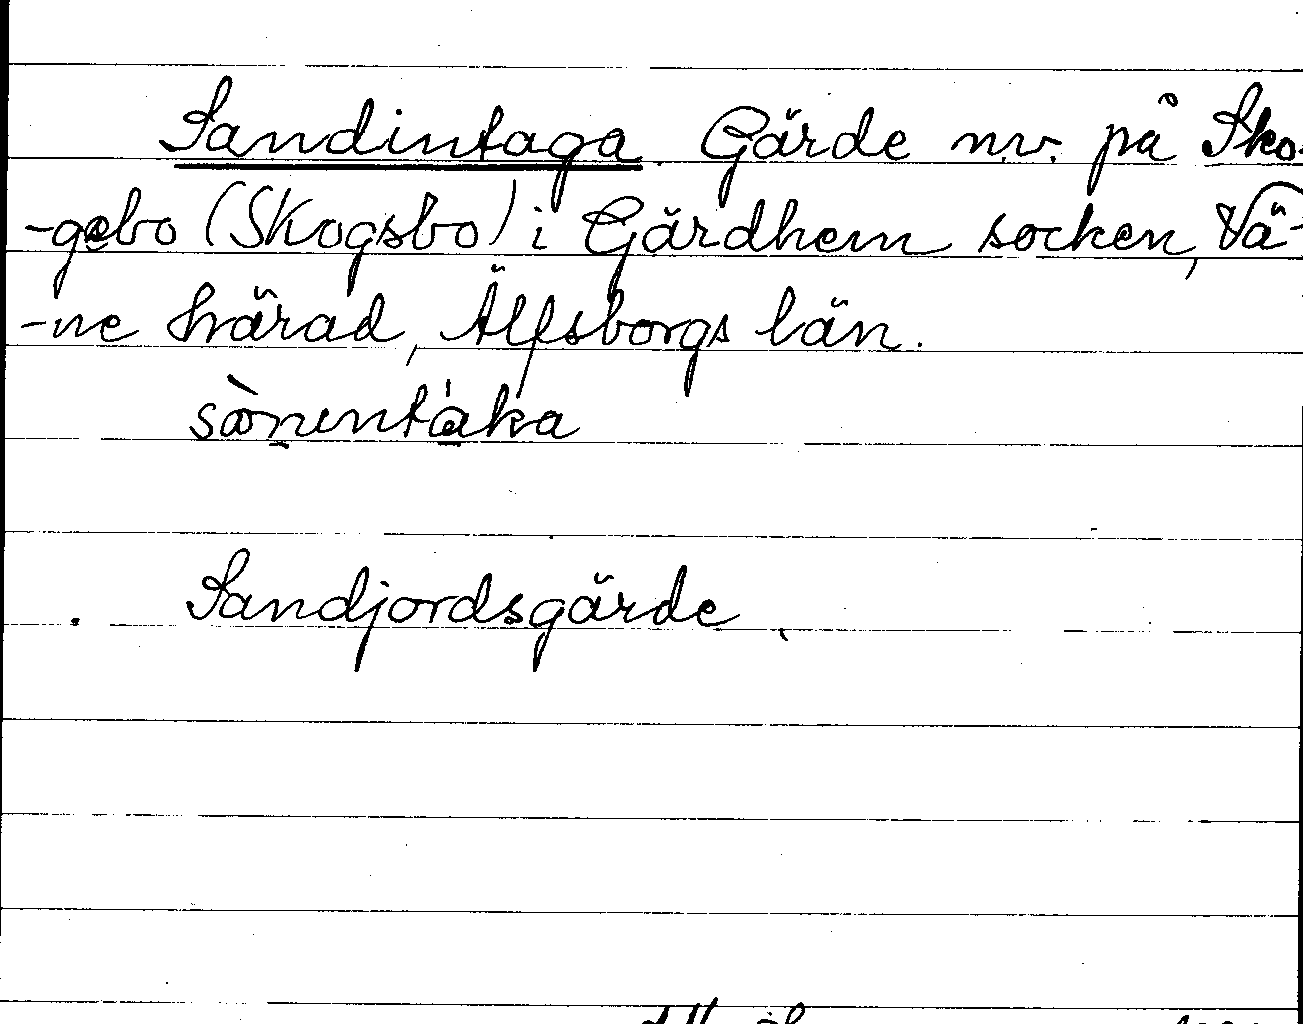 Sandintaga. Gärde n.v. på Sko-
-gebo (Skogsbo) i Gärdhem socken, Vä-
-ne härad, Älfsborgs län.
sànentáka
Sandjordsgärde